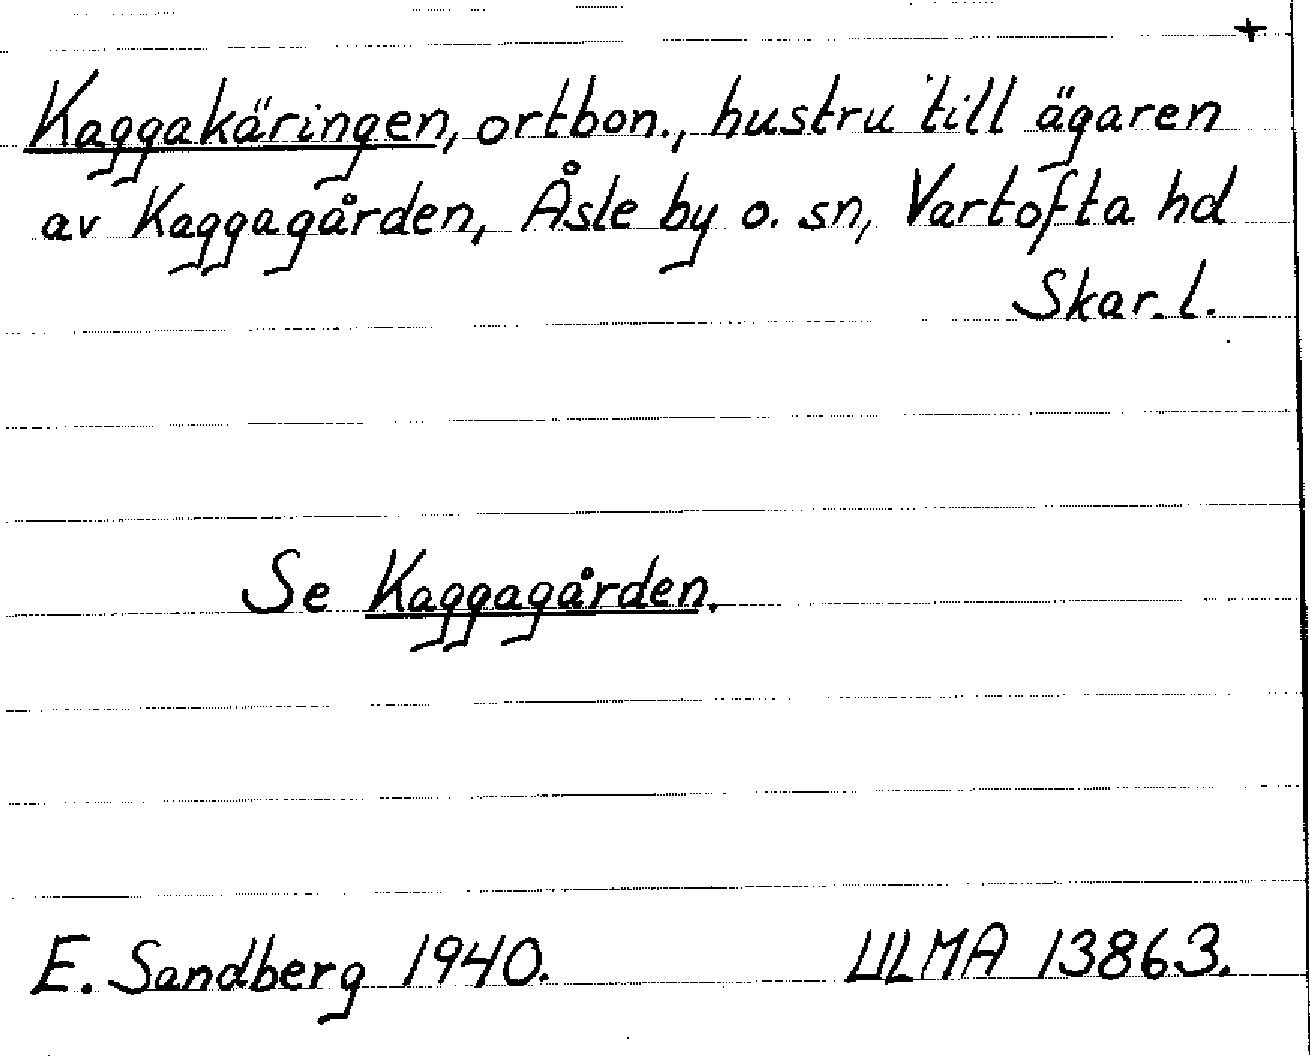 +
Kaggakäringen, ortbon., hustru till ägaren
av Kaggagården, Åsle by o. sn, Vartofta hd
Skar. l.
Se Kaggagården.
E. Sandberg 1940. ULMA 13863.